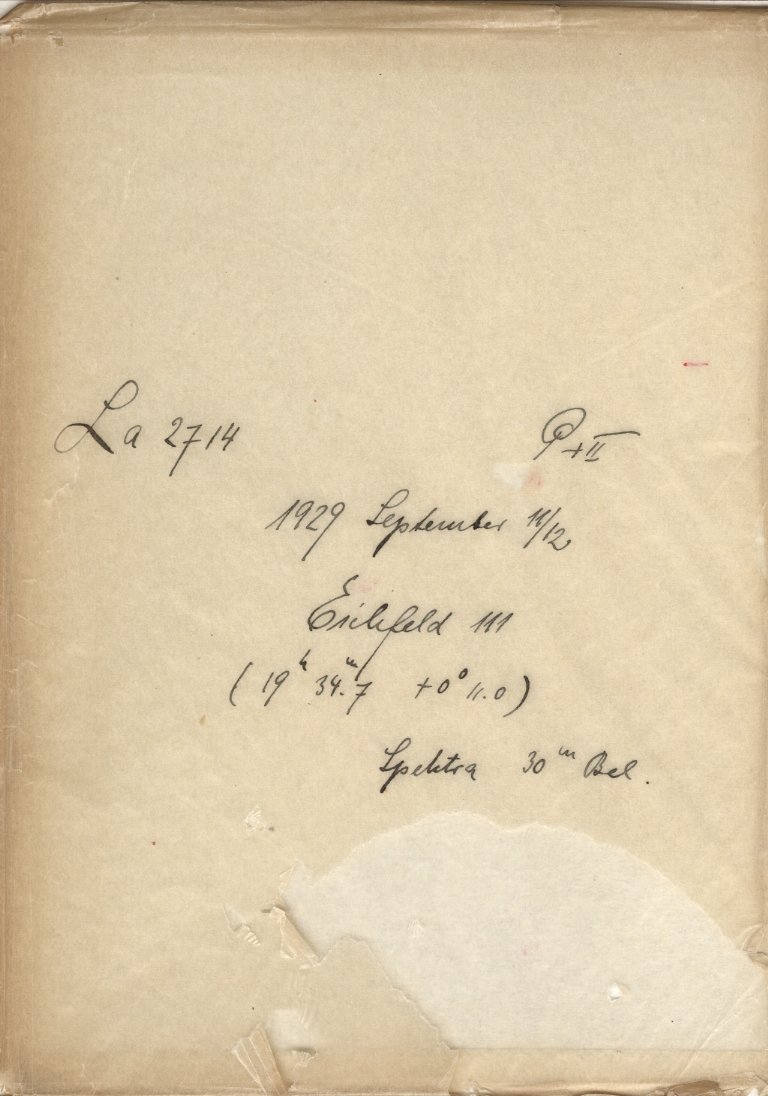 La 2714 P+II
1929 September 11/12
Eichfeld 111
(19h 34m.7 +0° 11.0)
Spektra 30m Bel.